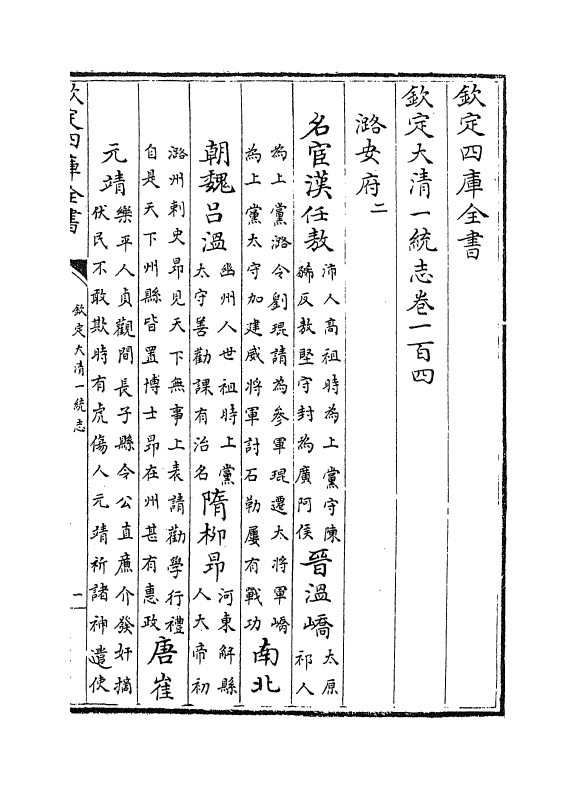 欽定四庫全書
欽定大清一統志卷一百四
潞安府二
名宦漢任敖沛人高祖時為上黨守陳豨反敖堅守封為廣阿侯晉溫嶠太原祁人
為上黨潞令劉琨請為參軍琨遷太將軍嶠為上黨太守加建威將軍討石勒屢有戰功南北
朝魏呂溫幽州人世祖時上黨太守善勸課有治名隋柳昂河東解縣人大帝初
潞州刺史昂見天下無事上表請勸學行禮自是天下州縣皆置博士昂在州甚有惠政唐崔
元靖樂平人貞觀間長子縣令公直廉介發奸摘伏民不敢欺時有虎傷人元靖祈諸神遣使
欽定四庫全書
欽定大清一統志
一